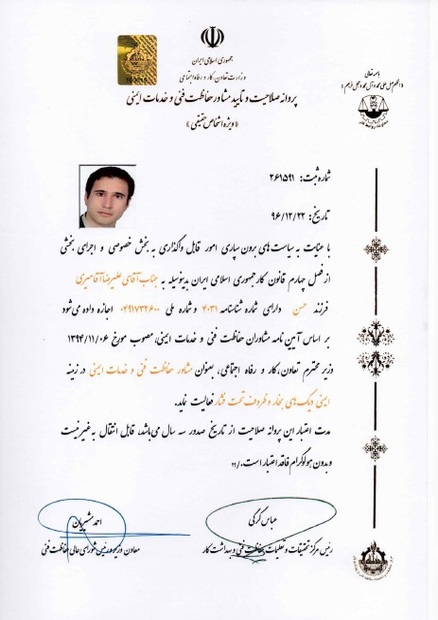 باسمه تعالی
«اللهم صل علی محمد و آل محمد و عجل فرجهم»
جمهوری اسلامی ایران
وزارت تعاون، کار و رفاه اجتماعی
پروانه صلاحیت و تأیید مشاور حفاظت فنی و خدمات ایمنی
«ویژه اشخاص حقیقی»
شماره ثبت: ۲۶۱۵۹۱
تاریخ: ۹۶/۱۲/۲۲
با عنایت به سیاست‌های برون سپاری امور قابل واگذاری به بخش خصوصی و اجرای بخشی
از فصل چهارم قانون کار جمهوری اسلامی ایران بدینوسیله به جناب آقای علیرضا آقامیری
فرزند حسن دارای شماره شناسنامه ۴۰۳۱ و شماره ملی ۰۴۹۱۷۳۲۶۰۰ اجازه داده می‌شود
بر اساس آیین نامه مشاوران حفاظت فنی و خدمات ایمنی، مصوب مورخ ۱۳۹۴/۱۱/۰۶
وزیر محترم تعاون، کار و رفاه اجتماعی، بعنوان مشاور حفاظت فنی و خدمات ایمنی در زمینه
ایمنی دیگ‌های بخار و ظروف تحت فشار فعالیت نماید.
مدت اعتبار این پروانه صلاحیت از تاریخ صدور سه سال می‌باشد، قابل انتقال به غیر نیست
و بدون هولوگرام فاقد اعتبار است.
عباس گرگی
رئیس مرکز تحقیقات و تعلیمات حفاظت فنی و بهداشت کار
احمد مشیریان
معاون وزیر و رئیس شورای عالی حفاظت فنی